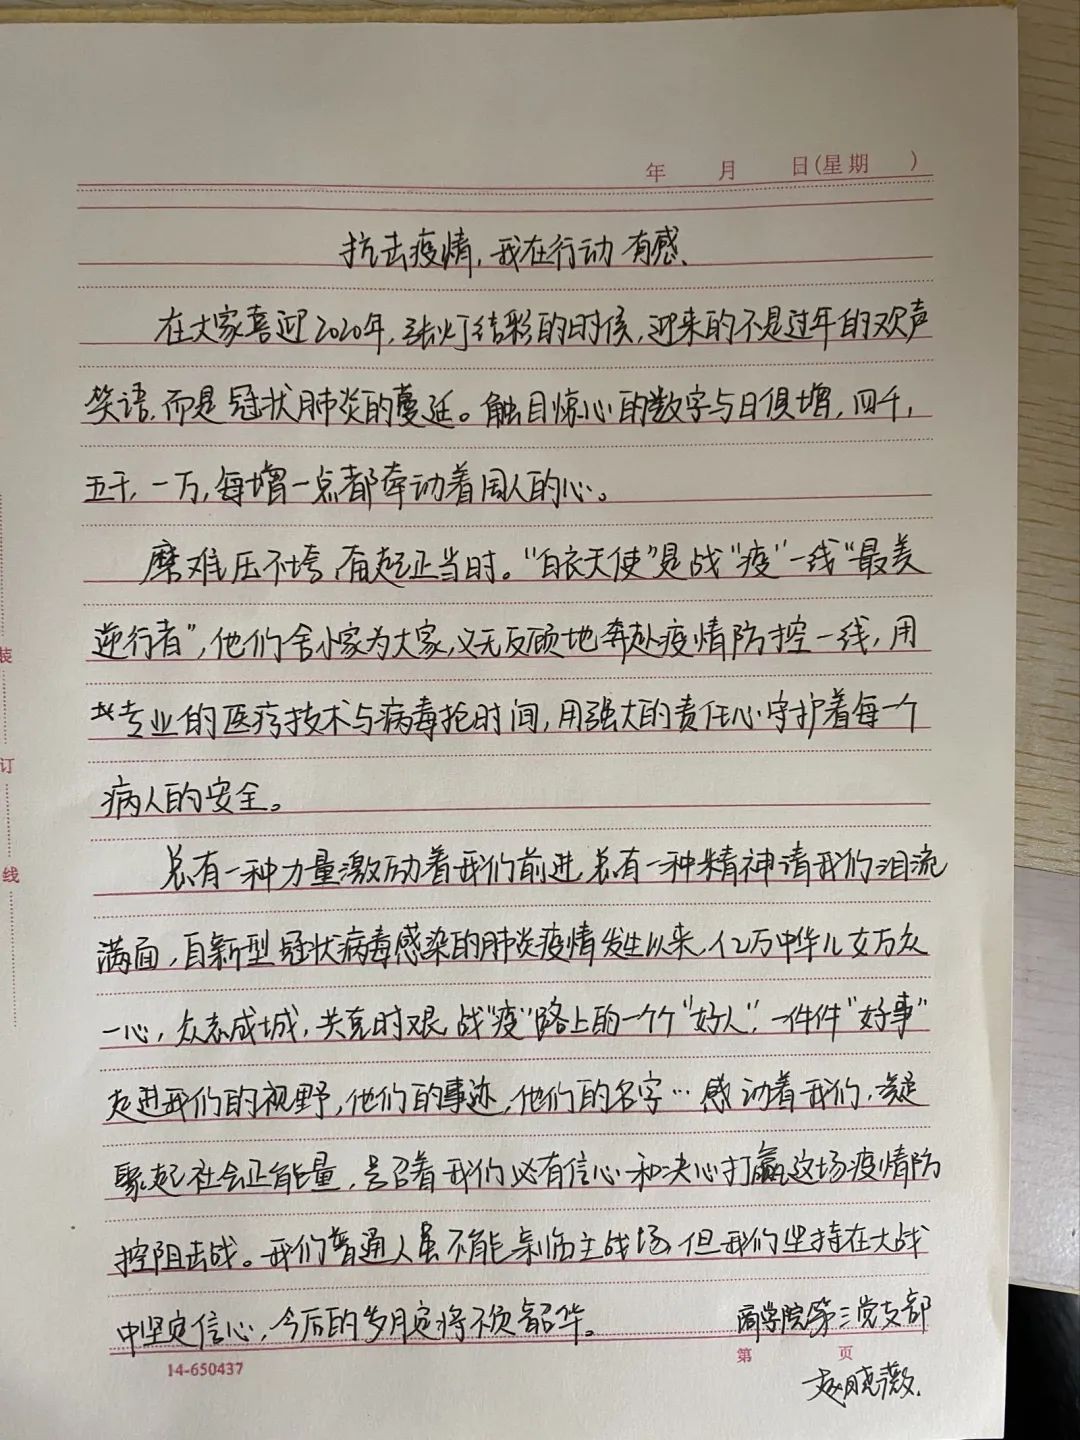 年 月 日(星期 )
抗击疫情,我在行动 有感、
在大家喜迎2020年,张灯结彩的时候,迎来的不是过年的欢声
笑语,而是冠状肺炎的蔓延。触目惊心的数字与日俱增,四千,
五千,一万,每增一点都牵动着国人的心。
磨难压不垮,奋起正当时。“白衣天使”是战“疫”一线“最美
逆行者”,他们舍小家为大家,义无反顾地奔赴疫情防控一线,用
专业的医疗技术与病毒抢时间,用强大的责任心守护着每一个
病人的安全。
总有一种力量激励着我们前进,总有一种精神请我们泪流
满面,自新型冠状病毒感染的肺炎疫情发生以来,亿万中华儿女万众
一心,众志成城,共克时艰,战“疫”路上的一个个“好人”,一件件“好事”
走进我们的视野,他们的事迹,他们的名字…感动着我们,凝
聚起社会正能量,号召着我们必有信心和决心打赢这场疫情防
控阻击战。我们普通人虽不能亲临主战场,但我们坚持在大战
中坚定信心,今后的岁月定将不负韶华。
商学院第三党支部
14-650437
第 页
赵晓薇.
装
订
线